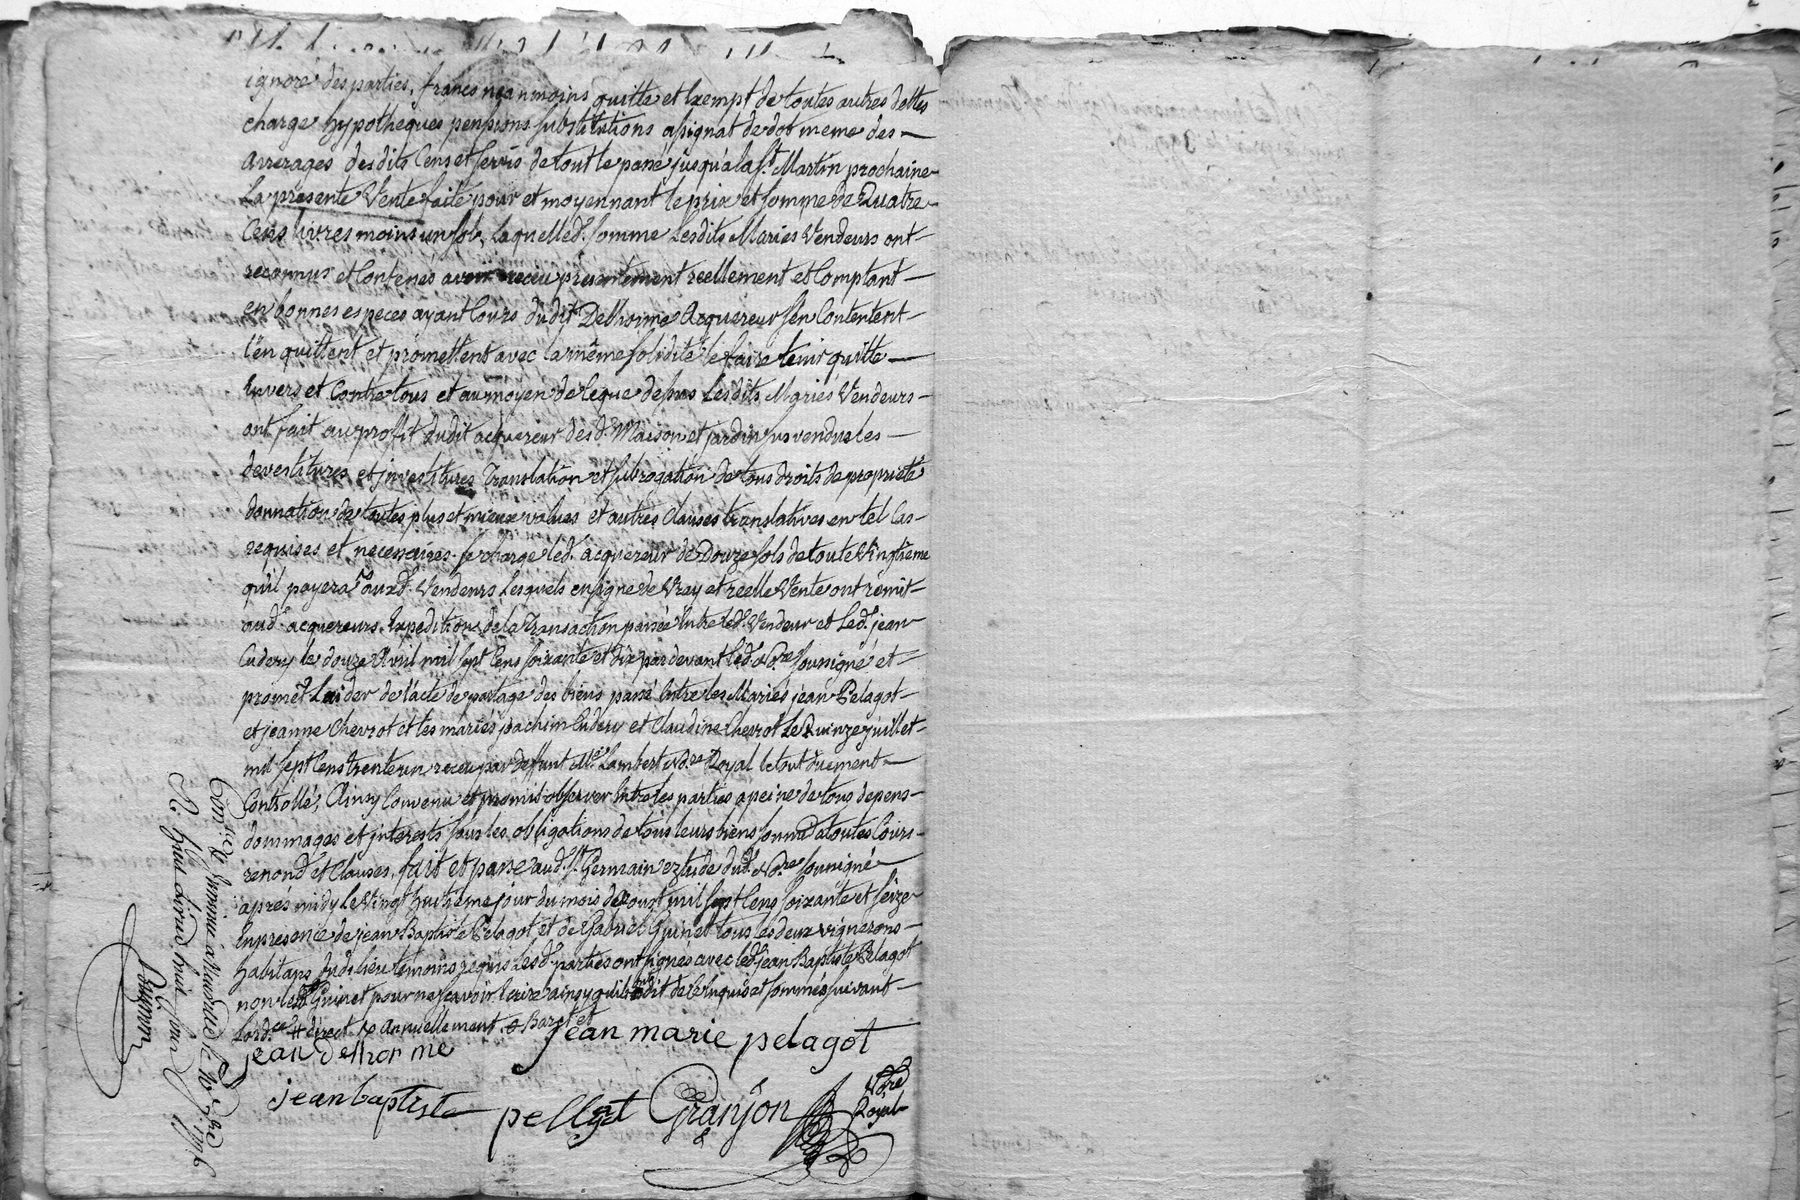 ignoré des parties, francs neanmoins quitte et Exempt de toutes autres dettes
charge hypotheques pensions substitutions assignat de dot meme des
arrerages desdits Cens et servis de tout le passé jusqu'a la St. Martin prochaine
La presente Vente faite pour et moyennant le prix et somme de Quatre
Cens livres moins un sol, Laquelle d. somme Lesdits Mariés Vendeurs ont
reconnus et Confessés avoir receu presentement reellement et Comptant
en bonnes especes ayant Cours dudit Delhorme Acquereur s'en Contentent
l'en quittent et promettent avec la même solidité le faire tenir quitte
Envers et Contre tous et au moyen de ce que dessus Lesdits Mariés Vendeurs
ont fait au profit dudit acquereur desd. Maison et jardin vendus les
devestitures et jnvestitures Translation et subrogation de tous droits de proprieté
donnation de toutes plus et mieux values et autres Clauses translatives en tel Cas
requises et necessaires se charge led. acquereur de Douze sols de toute Vingtième
qu'il payera auxd. Vendeurs Lesquels en signe de Vray et reelle Vente ont remit
aud. acquereurs Expedition de la Transaction passée Entre led. Vendeur et Led. jean
Cudery le douze Avril mil sept Cens soixante et dix pardevant Led. Nore. soussigné et
promet L'aider de l'acte de partage des biens passé Entre les Mariés jean Pelagot
et jeanne Chevrot et les mariés joachim Cudery et Claudine Chevrot Le Quinze juillet
mil sept Cens trente un receu par deffunt Me. Lambert Nore. Royal le tout duement
Controllé, Ainsy Convenu et promis observer Entre les parties a peine de tous depens
dommages et jnterests sous les obligations de tous leurs biens soumis a toutes Cours
renond. et Clauses, fait et passé aud. St. Germain Etude dud. Nore. soussigné
aprés midy Le Vingt huitieme jour du mois de Aoust mil sept Cens soixante et seize
En presence de jean Baptiste Pelagot et de Gabriel Guinet tous les deux vignerons
habitans dud. lieu temoins requis Lesd. parties ont signés avec led. jean Baptiste Pelagot
non led. Guinet pour ne sçavoir Ecrire ainsy qu'il a dit de ce Enquis et sommés suivant
Lord.ce direct & Annuellement
jean Delhorme
jean marie pelagot
jean baptiste pellagot
Granjon Nore Royal